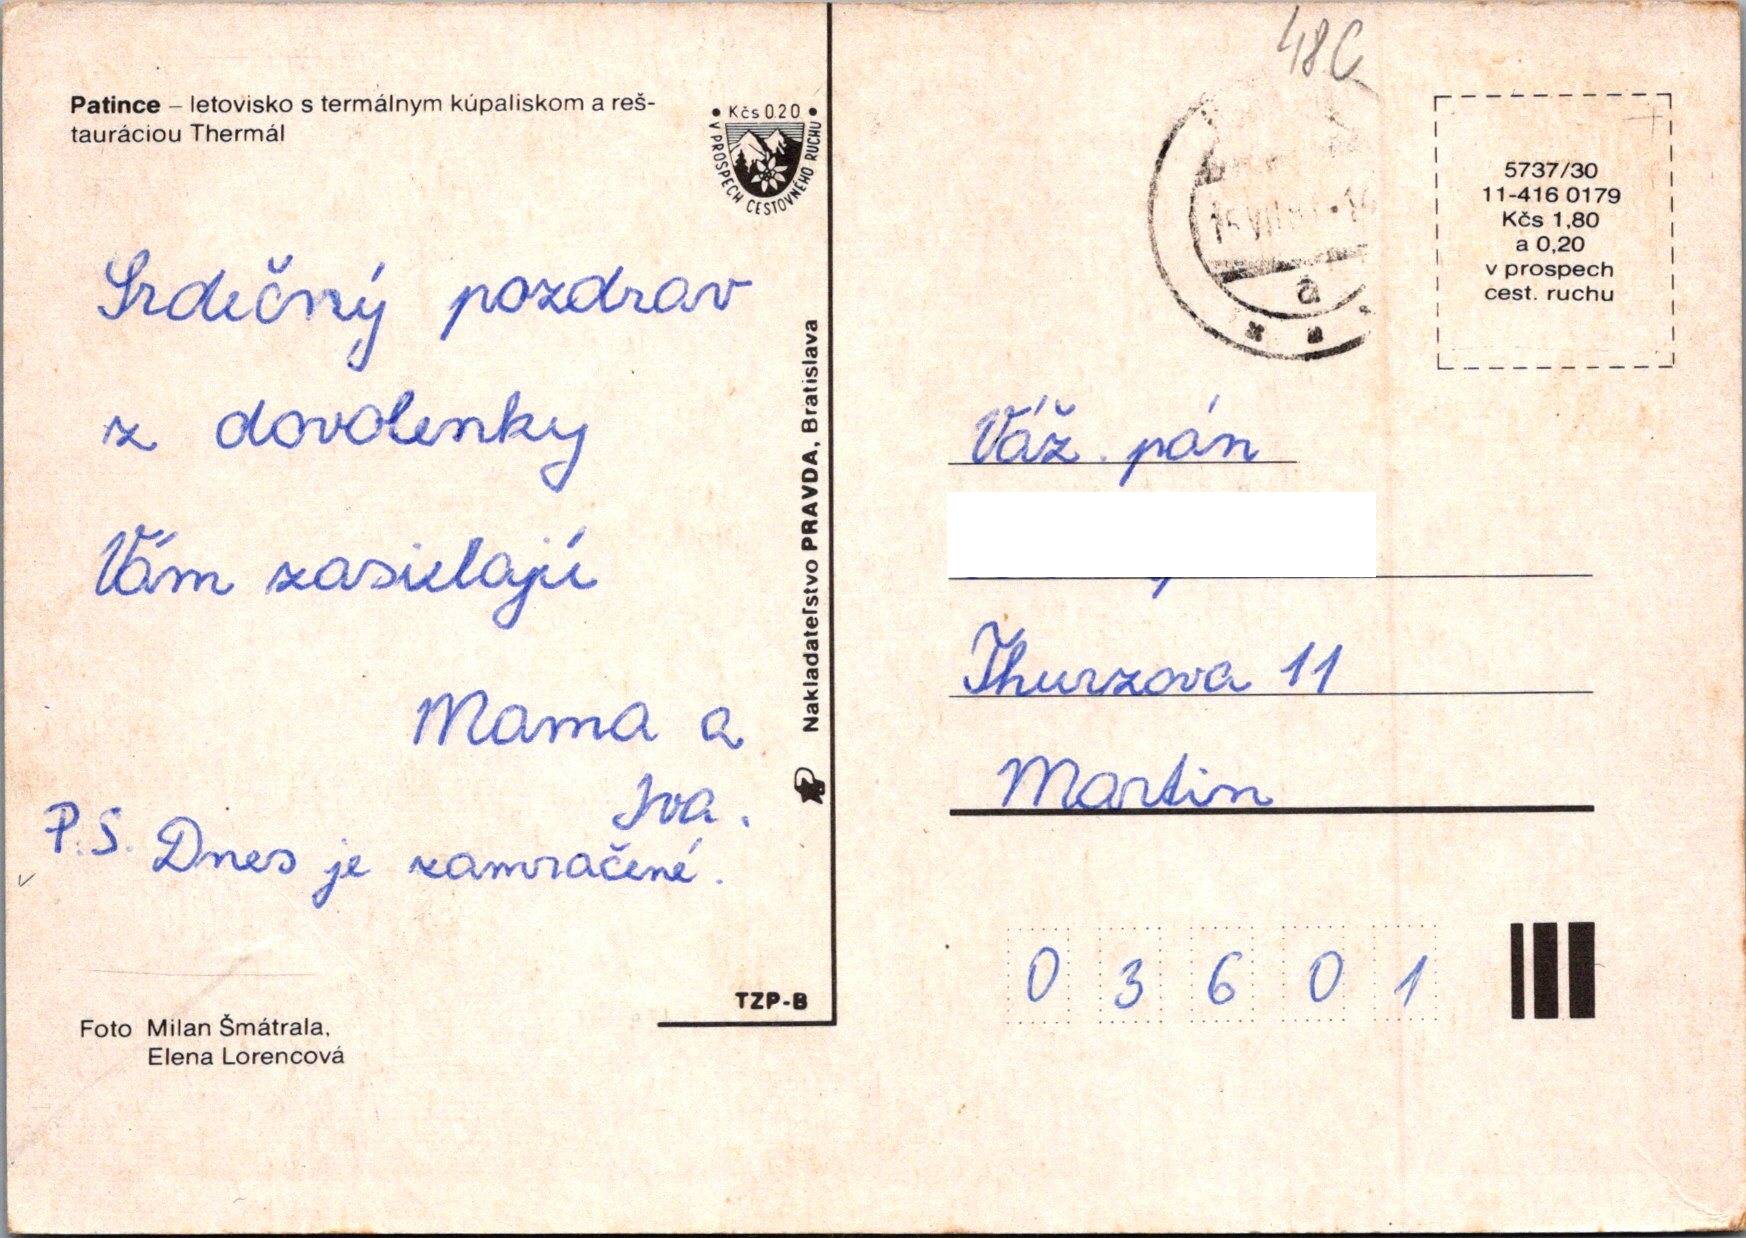 Patince – letovisko s termálnym kúpaliskom a reš-
tauráciou Thermál
Kčs 0.20
V PROSPECH CESTOVNÉHO RUCHU
Srdečný pozdrav
z dovolenky
Vám zasielajú
Mama a
Iva.
P.S. Dnes je zamračené.
Foto Milan Šmátrala,
Elena Lorencová
TZP-B
Nakladateľstvo PRAVDA, Bratislava
48C
5737/30
11-416 0179
Kčs 1,80
a 0,20
v prospech
cest. ruchu
Váž. pán
Thurzova 11
Martin
03601